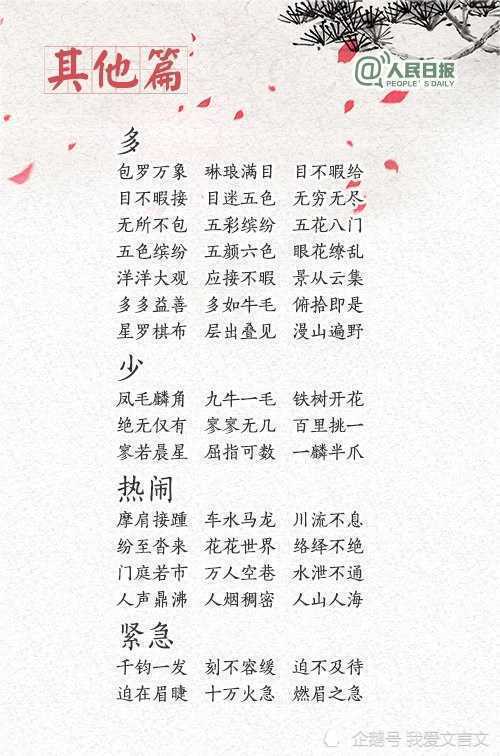 其他篇
@人民日报
PEOPLE'S DAILY
多
包罗万象 琳琅满目 目不暇给
目不暇接 目迷五色 无穷无尽
无所不包 五彩缤纷 五花八门
五色缤纷 五颜六色 眼花缭乱
洋洋大观 应接不暇 景从云集
多多益善 多如牛毛 俯拾即是
星罗棋布 层出叠见 漫山遍野
少
凤毛麟角 九牛一毛 铁树开花
绝无仅有 寥寥无几 百里挑一
寥若晨星 屈指可数 一麟半爪
热闹
摩肩接踵 车水马龙 川流不息
纷至沓来 花花世界 络绎不绝
门庭若市 万人空巷 水泄不通
人声鼎沸 人烟稠密 人山人海
紧急
千钧一发 刻不容缓 迫不及待
迫在眉睫 十万火急 燃眉之急
企鹅号 我爱文言文